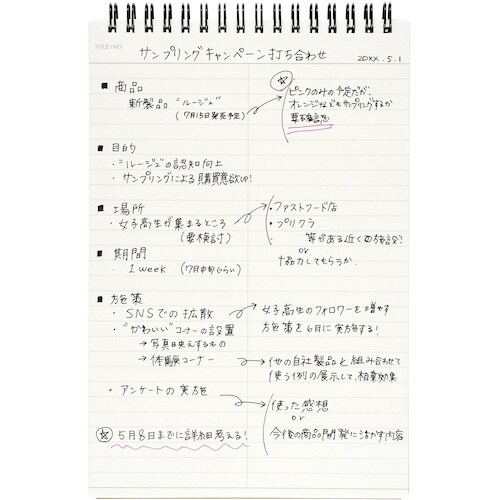 TITLE/NO.
サンプリングキャンペーン打ち合わせ
20XX.5.1
■ 商品
新製品 "ルージュ"
(7月15日発売予定)
☆
ピンクのみの予定だが、
オレンジなどもサンプリングするか
要確認
■ 目的
・"ルージュ"の認知向上
・サンプリングによる購買意欲UP!
■ 場所
・女子高生が集まるところ
(要検討)
・ファストフード店
・プリクラ
等がある近くの施設?
or
協力してもらうか
■ 期間
・1week (7月中旬ぐらい)
■ 施策
・SNSでの拡散
女子高生のフォロワーを増やす
施策を6月に実施する!
・"かわいい"コーナーの設置
→写真映えするもの
→体験コーナー
・他の自社製品と組み合わせて
使う例の展示して、相乗効果
・アンケートの実施
使った感想
or
今後の商品開発に活かす内容
☆ 5月8日までに詳細考える!